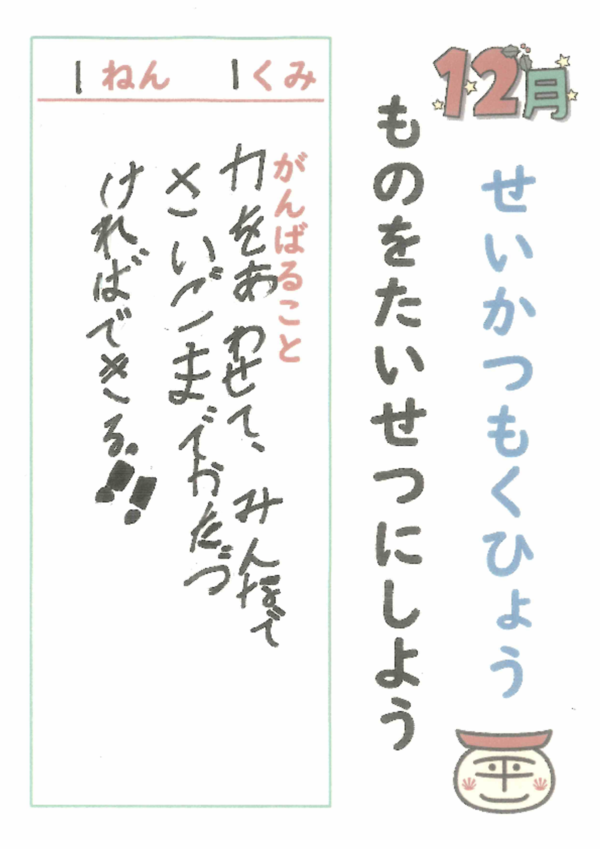 12月
せいかつもくひょう
ものをたいせつにしよう
1ねん 1くみ
がんばること
力をあわせて、みんなで
さいごまでかたづ
ければできる!!